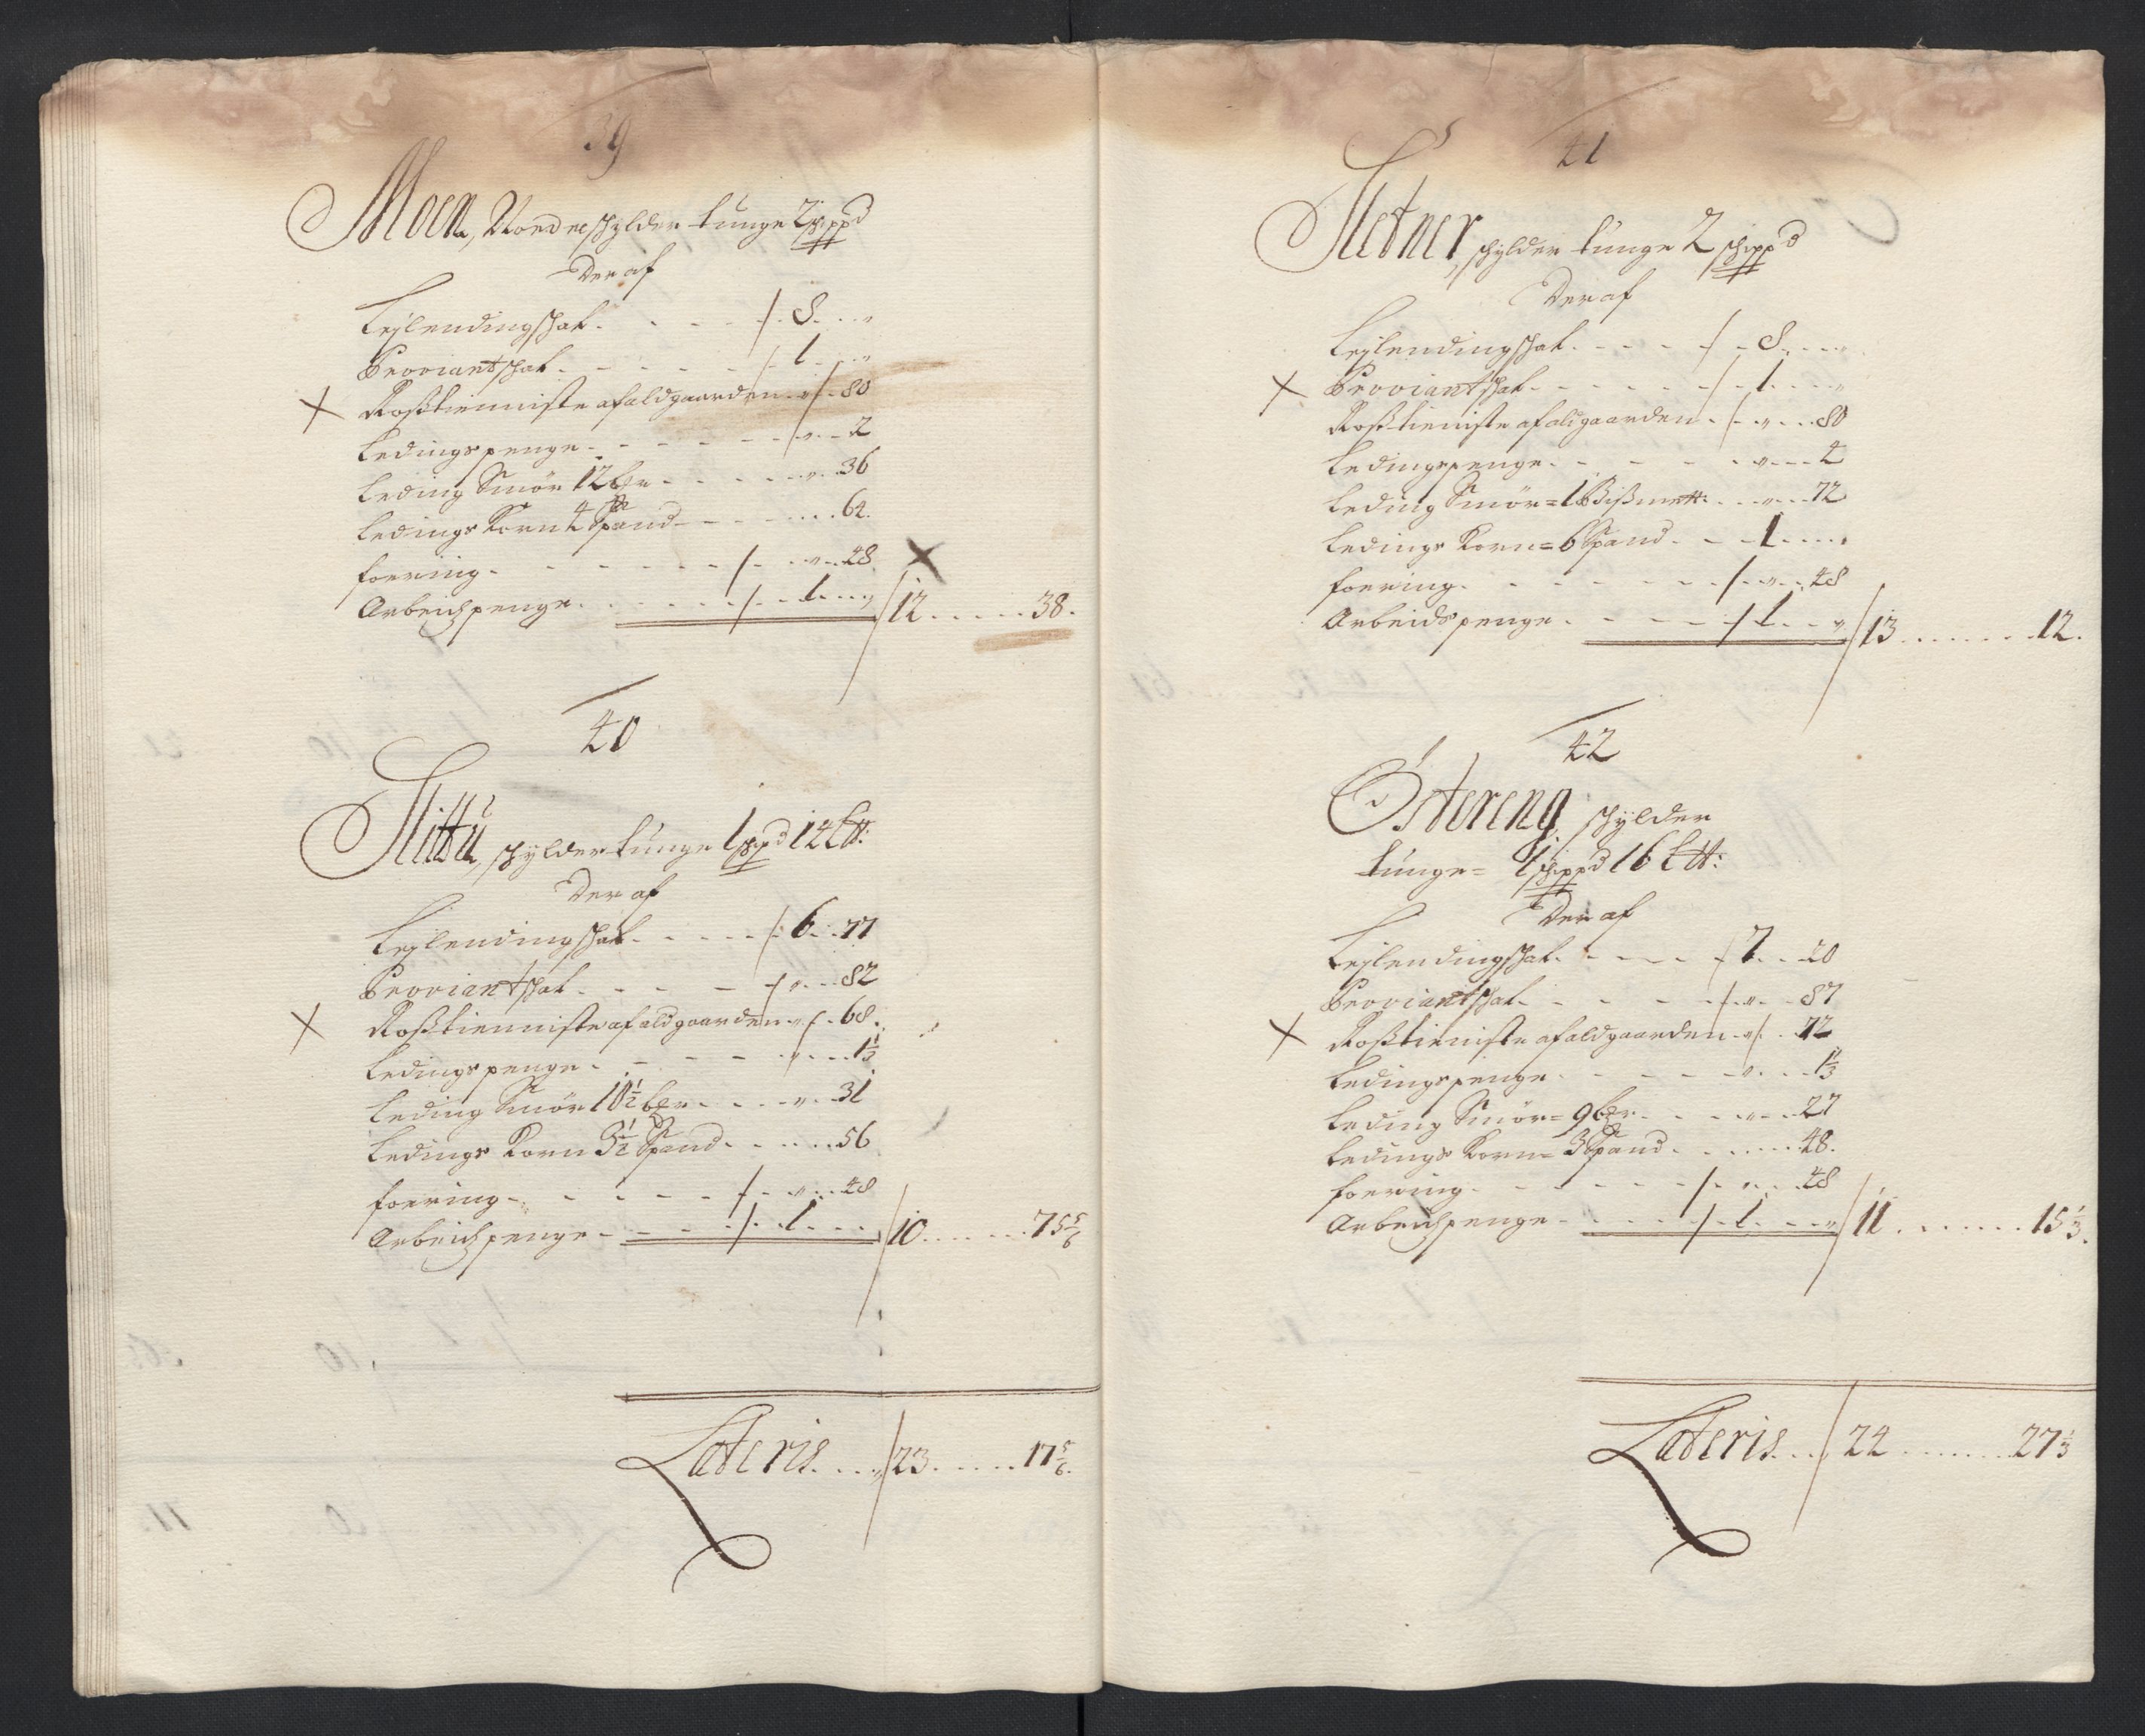 39
Moen, Nordre schylder tunge 2 schippd
Deraf
Lejlendingschat . . . . 8 . . „
Proviantschat . . . . 1 . . „
× Rosstienniste af aldgaarden „ . 80
Ledingspenge . . . . „ . . 2
Leding Smör 12 ber . . . „ . 36
Ledings Korn 4 Spand . . . . 64.
foering . . . . „ . . 48. ×
Arbeidspenge . . . . 1 . . „ / 12 . . . . . 38.
40
Slittü, schylder tunge 1 schippd 14 L℔:
Deraf
Lejlendingschat . . . . 6 . . 77
Proviantschat . . . . „ . . 82
× Rosstienniste af aldgaarden „ . 68.
Ledingspenge . . . . „ . . 1½
Leding Smör 10½ ber . . . „ . 31
Ledings Korn 3½ Spand . . . . 56
foering . . . . „ . . 48
Arbeidspenge . . . . 1 . . . / 10 . . . . . 75 5/6
Lateris . . . / 23 . . . . . 17 5/6.
41
Sletner, schylder tunge 2 schippd
Deraf
Lejlendingschat . . . . 8 . . „
× Proviantschat . . . . 1 . . „
Rosstieniste af aldgaarden . „ . . 80
Ledingspenge . . . . „ . . 4
Leding Smör = 1 Bissmett: . . „ . . 72
Ledings Korn = 6 Spand . . 1 . . „
foering . . . . „ . . 48
Arbeidspenge . . . . 1 . . „ / 13 . . . . . 12.
42
Östereng, schylder
tunge = 1 schippd 16 L℔:
Deraf
Lejlendingschat . . . . 7 . . 20
Proviantschat . . . . „ . . 87
× Rosstieniste af aldgaarden . „ . 72
Ledingspenge . . . . „ . . 1⅓
Leding Smör = 9 ber . . . „ . . 27
Ledings Korn = 3 Spand . . . . 48.
foering . . . . „ . . 48
Arbeidspenge . . . . 1 . . „ / 11 . . . . . 15⅓.
Lateris . . / 24 . . . . . 27⅓